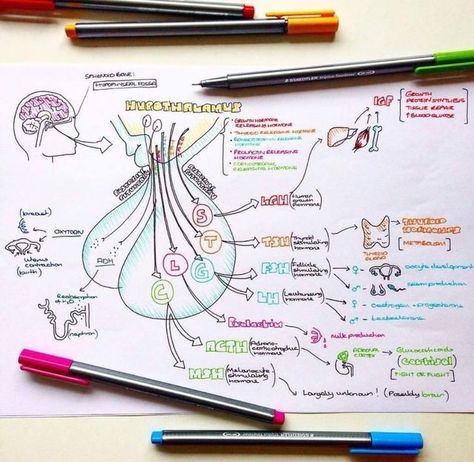 SPHENOID BONE:
HYPOPHYSEAL FOSSA
HYPOTHALAMUS
GROWTH HORMONE
RELEASING HORMONE
THYROID RELEASING HORMONE
HORMONE
PROLACTIN RELEASING
HORMONE
RELEASING HORMONE
IGF
GROWTH
PROTEIN SYNTHESIS
TISSUE REPAIR
BLOOD GLUCOSE
STAEDTLER
S
T
G
L
C
hGH (Human
growth
hormone)
TSH (Thyroid
stimulating
hormone)
THYROID
GLAND
THYROID
HORMONES
METABOLISM
FSH (Follicle
stimulating
hormone)
♀ - oocyte development
♂ - sperm production
LH (Luteinising
hormone)
♀ - oestrogen + progesterone
♂ - testosterone
Prolactin
milk production
ACTH (Adreno-
corticotrophic
hormone)
ADRENAL
CORTEX
Glucocorticoids
(Cortisol)
FIGHT OR FLIGHT
MSH (Melanocyte
stimulating
hormone)
Largely unknown! (Possibly brain)
(breast)
OXYTOCIN
uterus
contraction
(birth)
ADH
Reabsorption
of H2O
nephron